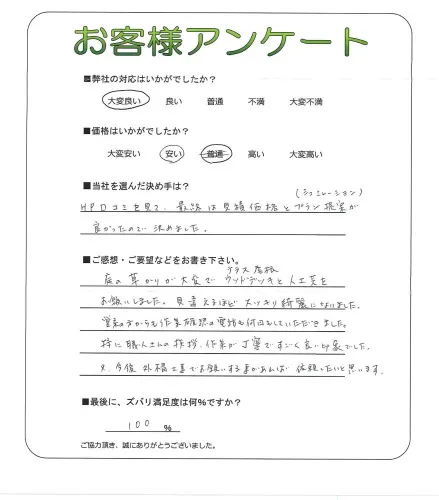 お客様アンケート
■弊社の対応はいかがでしたか？
大変良い 良い 普通 不満 大変不満
■価格はいかがでしたか？
大変安い 安い 普通 高い 大変高い
■当社を選んだ決め手は？
(シミュレーション)
HP口コミを見て、最終は見積価格とプラン提案が
良かったので決めました。
■ご感想・ご要望などをお書き下さい。
テラス屋根
庭の草かりが大変でウッドデッキと人工芝を
お願いしました。見違えるほどスッキリ綺麗になりました。
営業の方からも作業確認の電話も何回もしていただきました。
特に職人さんの挨拶、作業が丁寧ですごく良い印象でした。
又、今後外構工事でお願いする事があれば依頼したいと思います。
■最後に、ズバリ満足度は何%ですか？
100 %
ご協力頂き、誠にありがとうございました。